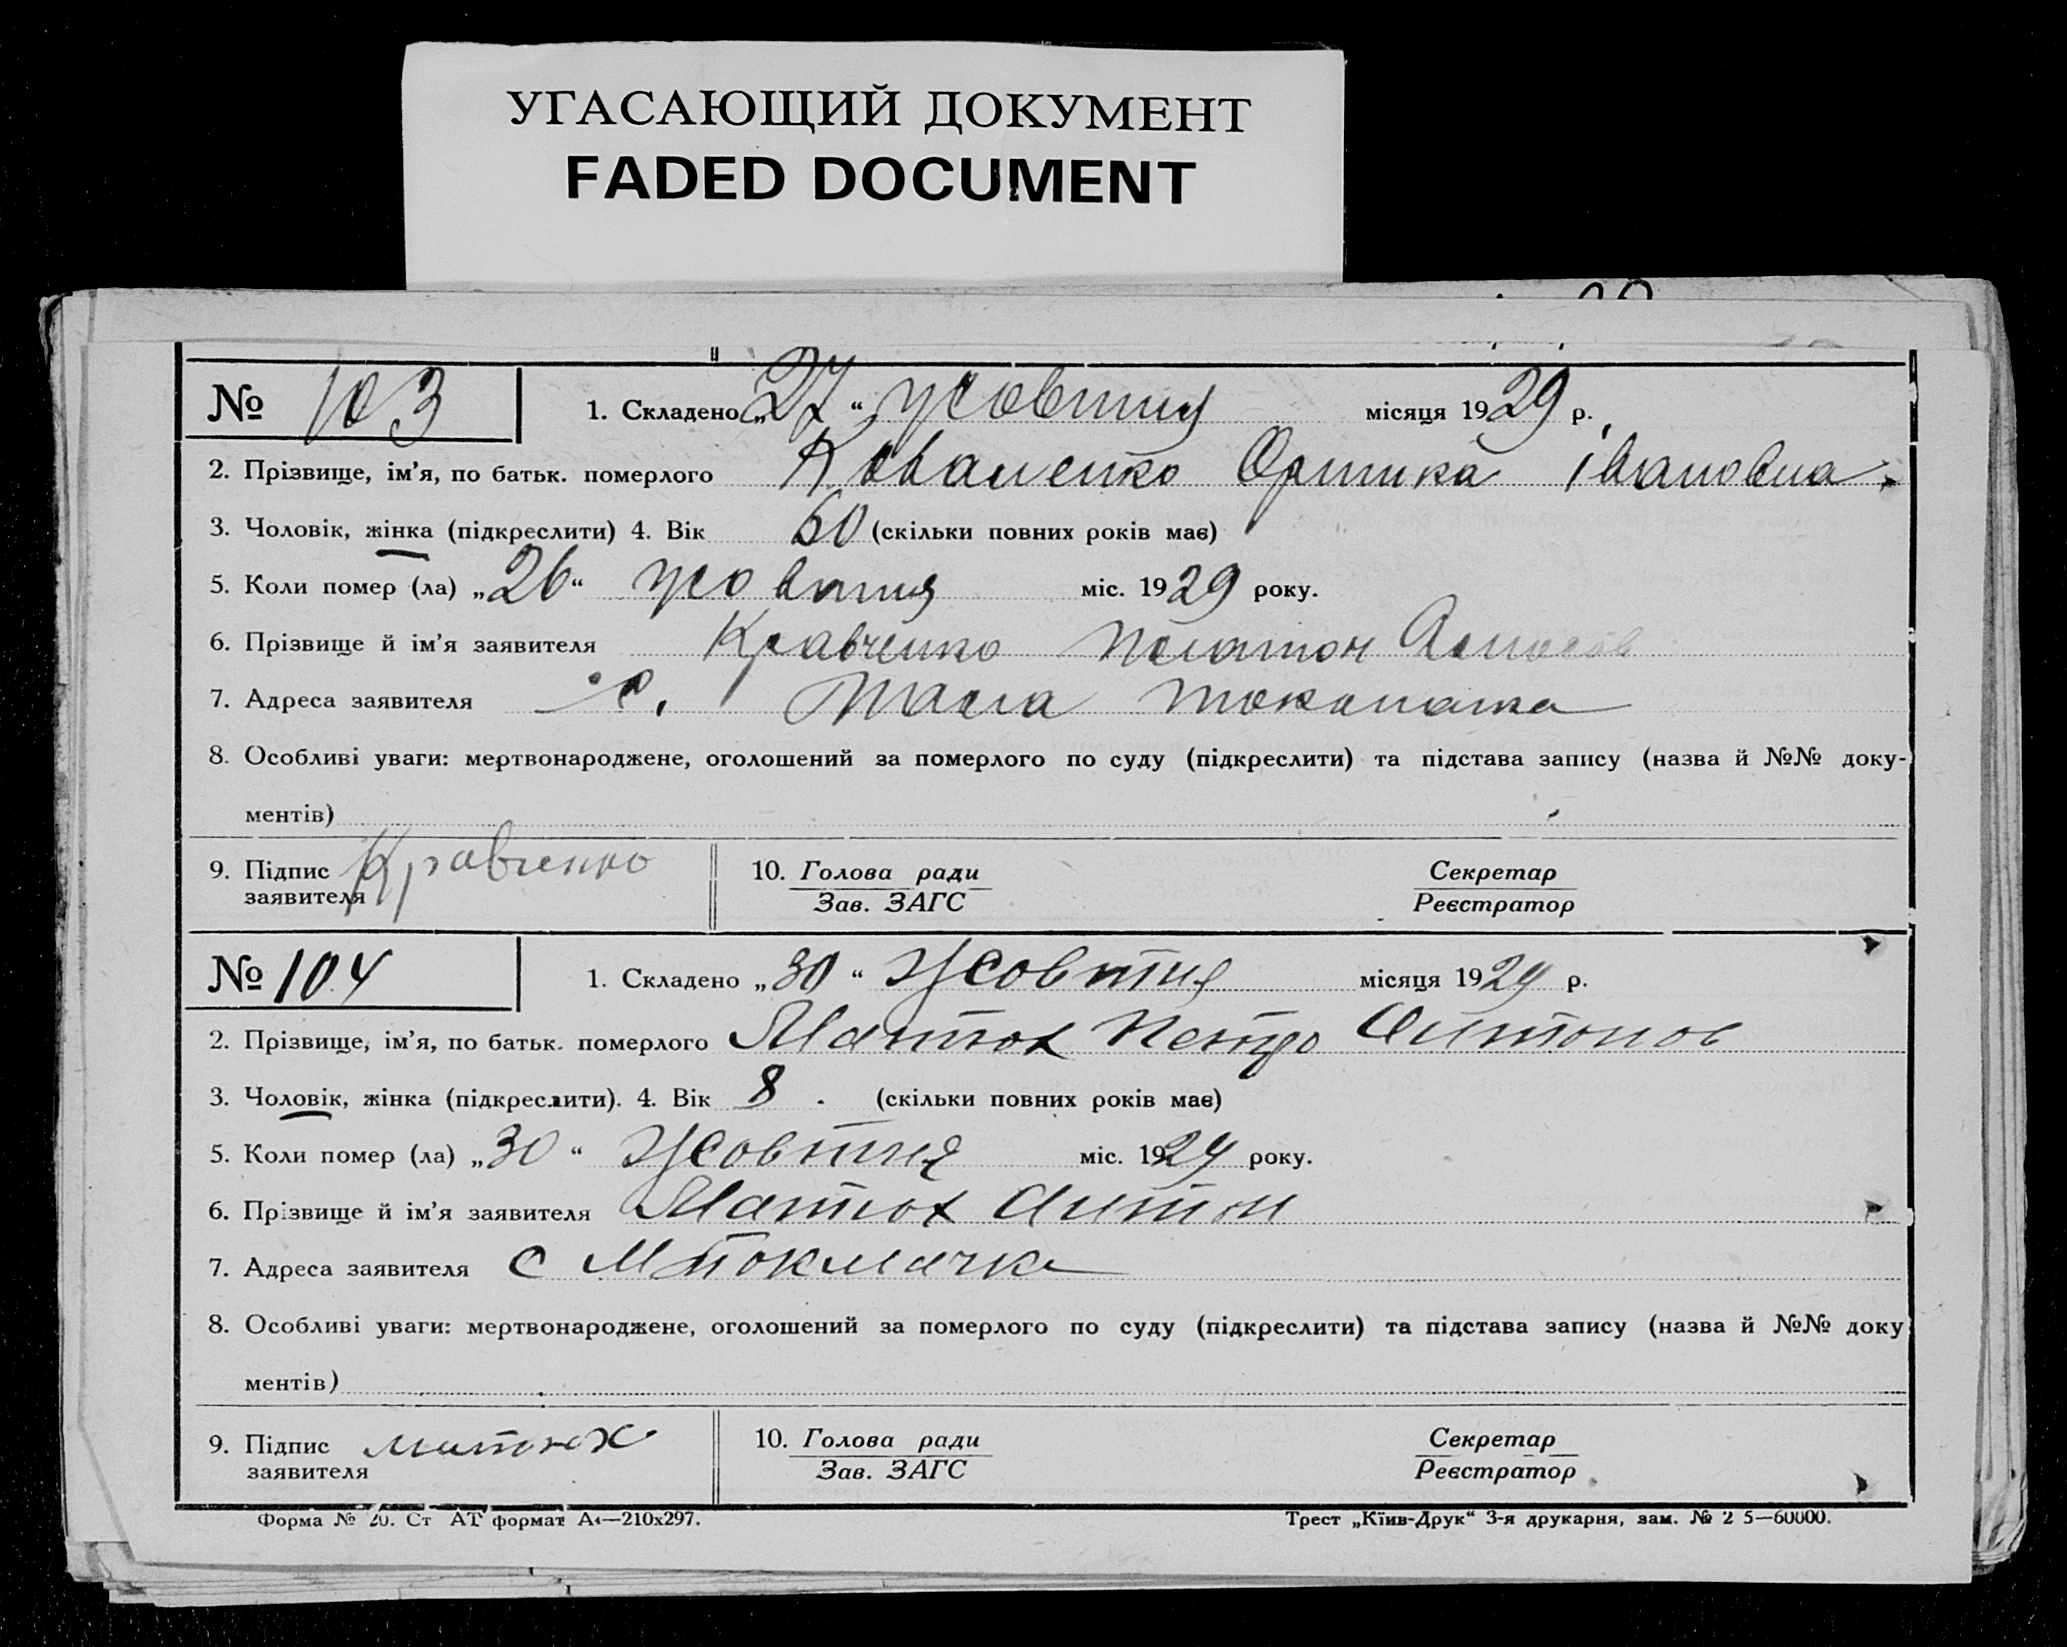 УГАСАЮЩИЙ ДОКУМЕНТ
FADED DOCUMENT
№ 103 1. Складено „27“ жовтня місяця 1929 р.
2. Прізвище, ім'я, по батьк. померлого Коваленко Оришка Івановна.
3. Чоловік, жінка (підкреслити) 4. Вік 60 (скільки повних років має)
5. Коли помер (ла) „26“ жовтня міс. 1929 року.
6. Прізвище й ім'я заявителя Кравченко Платон
7. Адреса заявителя с. Мала токмачка
8. Особливі уваги: мертвонароджене, оголошений за померлого по суду (підкреслити) та підстава запису (назва й №№ доку-
ментів)
9. Підпис Кравченко 10. Голова ради Секретар
заявителя Зав. ЗАГС Реєстратор
№ 104 1. Складено „30“ Жовтня місяця 1929 р.
2. Прізвище, ім'я, по батьк. померлого Матюх Петро Антонов
3. Чоловік, жінка (підкреслити). 4. Вік 8 . (скільки повних років має)
5. Коли помер (ла) „30“ Жовтня міс. 1929 року.
6. Прізвище й ім'я заявителя Матюх Антон
7. Адреса заявителя с М токмачка
8. Особливі уваги: мертвонароджене, оголошений за померлого по суду (підкреслити) та підстава запису (назва й №№ доку
ментів)
9. Підпис матюх 10. Голова ради Секретар
заявителя Зав. ЗАГС Реєстратор
Форма № 20. Ст АТ формат А4—210х297. Трест „Київ-Друк“ 3-я друкарня, зам. № 2 5—60000.